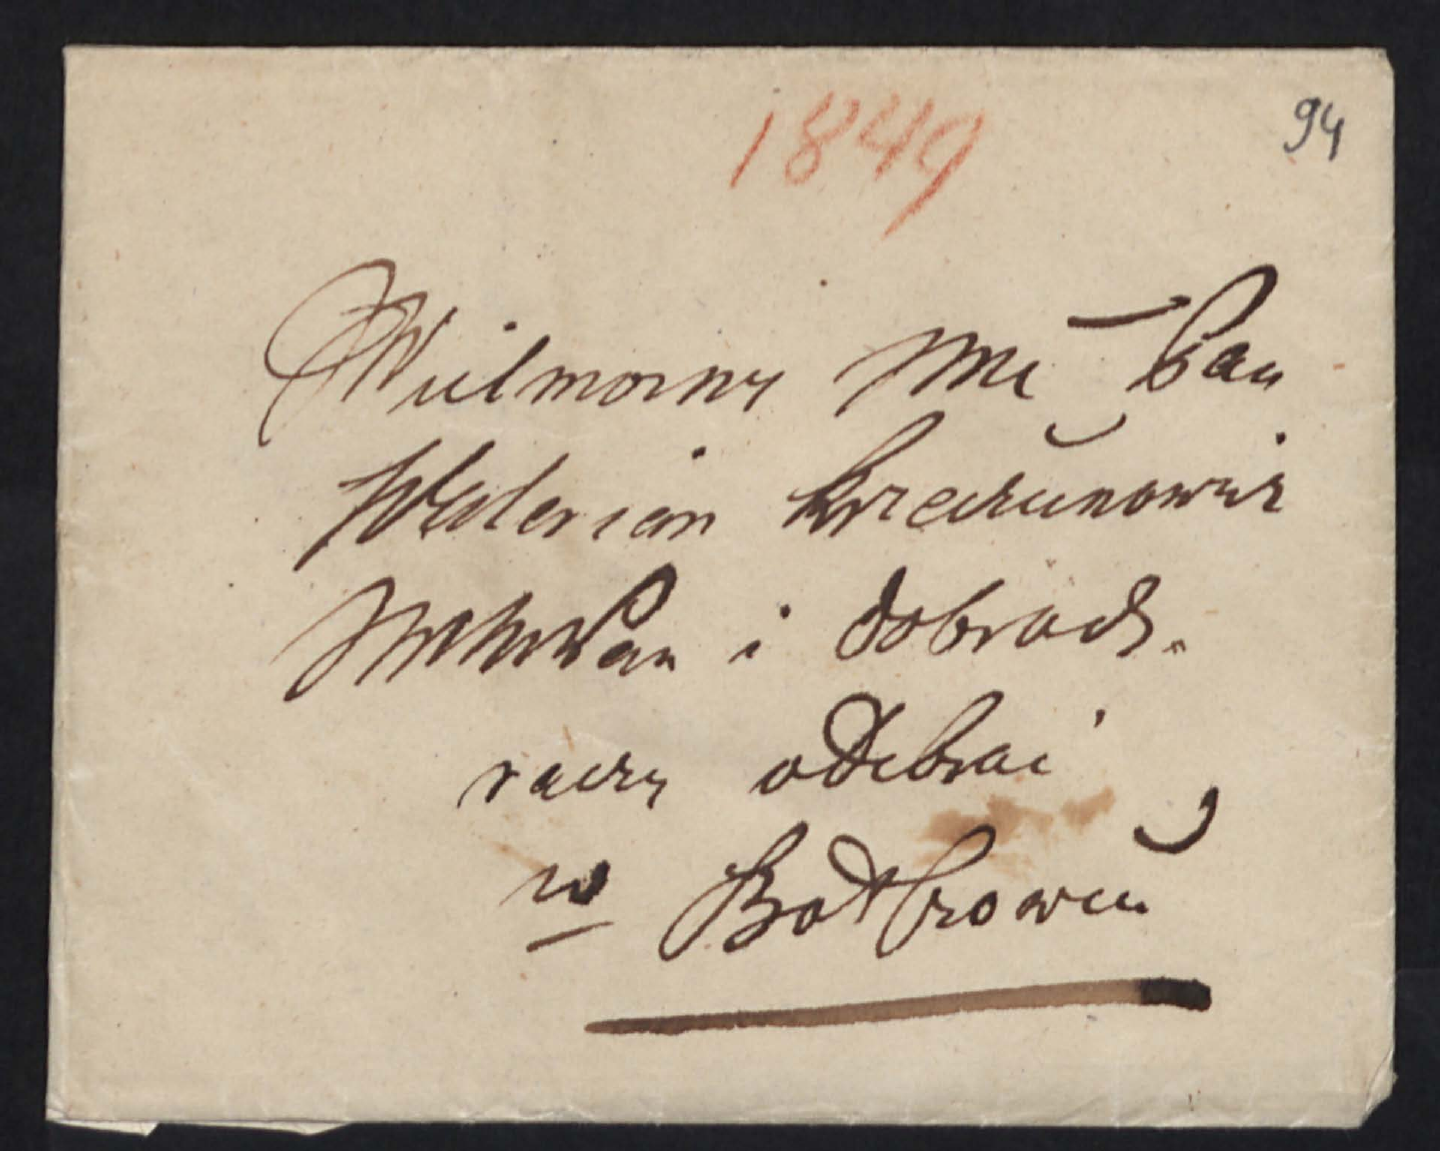 1849
94
Wielmożny Jmć Pan
Walerian Krzeczunowicz
i Dobrodz.
raczy odebrać
w Bołszowcu